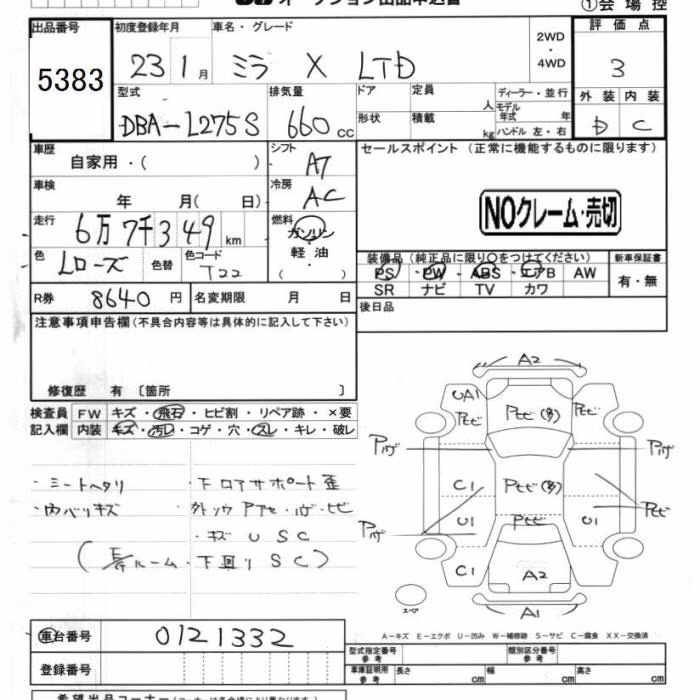 オークション出品申込書
①会場控
出品番号 初度登録年月 車名・グレード 2WD・4WD 評価点
5383 23 1月 ミラ X LTD 3
型式 排気量 ドア 定員 人 ディーラー・並行 外装 内装
DBA-L275S 660 CC 形状 積載 kg モデル年式 年 ハンドル 左・右 D C
車歴 自家用・( ) シフト AT セールスポイント (正常に機能するものに限ります)
車検 年 月( 日) 冷房 AC
NOクレーム・売切
走行 6万7千349km 燃料 ガソリン・軽油( )
色 Lローズ 色替 色コード T22
装備品 (純正品に限り○をつけてください) 新車保証書
PS・PW・ABS・エアB AW 有・無
SR ナビ TV カワ
R券 8640円 名変期限 月 日 後日品
注意事項申告欄(不具合内容等は具体的に記入して下さい)
修復歴 有〔箇所 〕
検査員記入欄 FW キズ・飛石・ヒビ割・リペア跡・×要
内装 キズ・汚レ・コゲ・穴・スレ・キレ・破レ
・シートヘタリ ・下ロアサポート歪
・内バリキズ ・外ソウ Pアセ・ハゲ・ヒビ
・キズ U S C
(ルーム・下回り S C)
A2
UA1 Pヒビ Pヒビ(多) Pヒビ
Pハゲ Pハゲ
C1 Pヒビ(多) Pヒビ
Pハゲ U1 Pヒビ U1
C1 A2
スペア A1
A-キズ E-エクボ U-凹み W-補修跡 S-サビ C-腐食 XX-交換済
車台番号 0121332
登録番号
型式指定番号 参考 類別区分番号 参考
車庫証明用 参考 長さ cm 幅 cm 高さ cm
希望出品コーナー